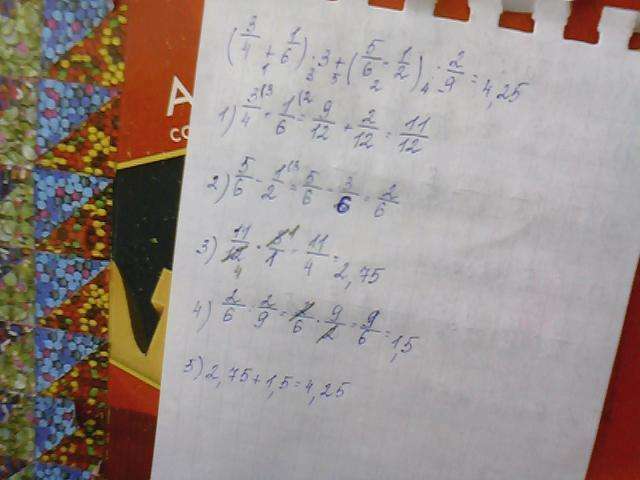 (3/4 + 1/6) · 3 + (5/6 - 1/2) : 2/9 = 4,25
1 3 5 2 4
1) 3(3/4 + 1(2/6 = 9/12 + 2/12 = 11/12
2) 5/6 - 1(3/2 = 5/6 - 3/6 = 2/6
3) 11/12 · 3/1 = 11/4 = 2,75
4) 2/6 : 2/9 = 2/6 · 9/2 = 9/6 = 1,5
5) 2,75 + 1,5 = 4,25
A
CO